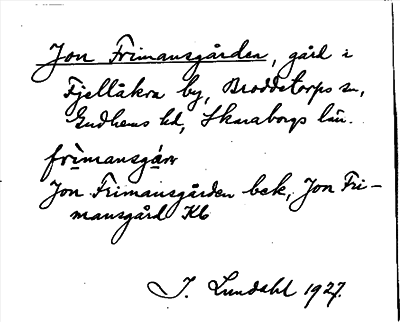 Jon Frimansgården, gård i
Fjellåkra by, Broddetorps sn,
Gudhems hd, Skaraborgs län.
frìmansgár̀
Jon Frimansgården bek, Jon Fri-
mansgård Kb
I. Lundahl 1927.